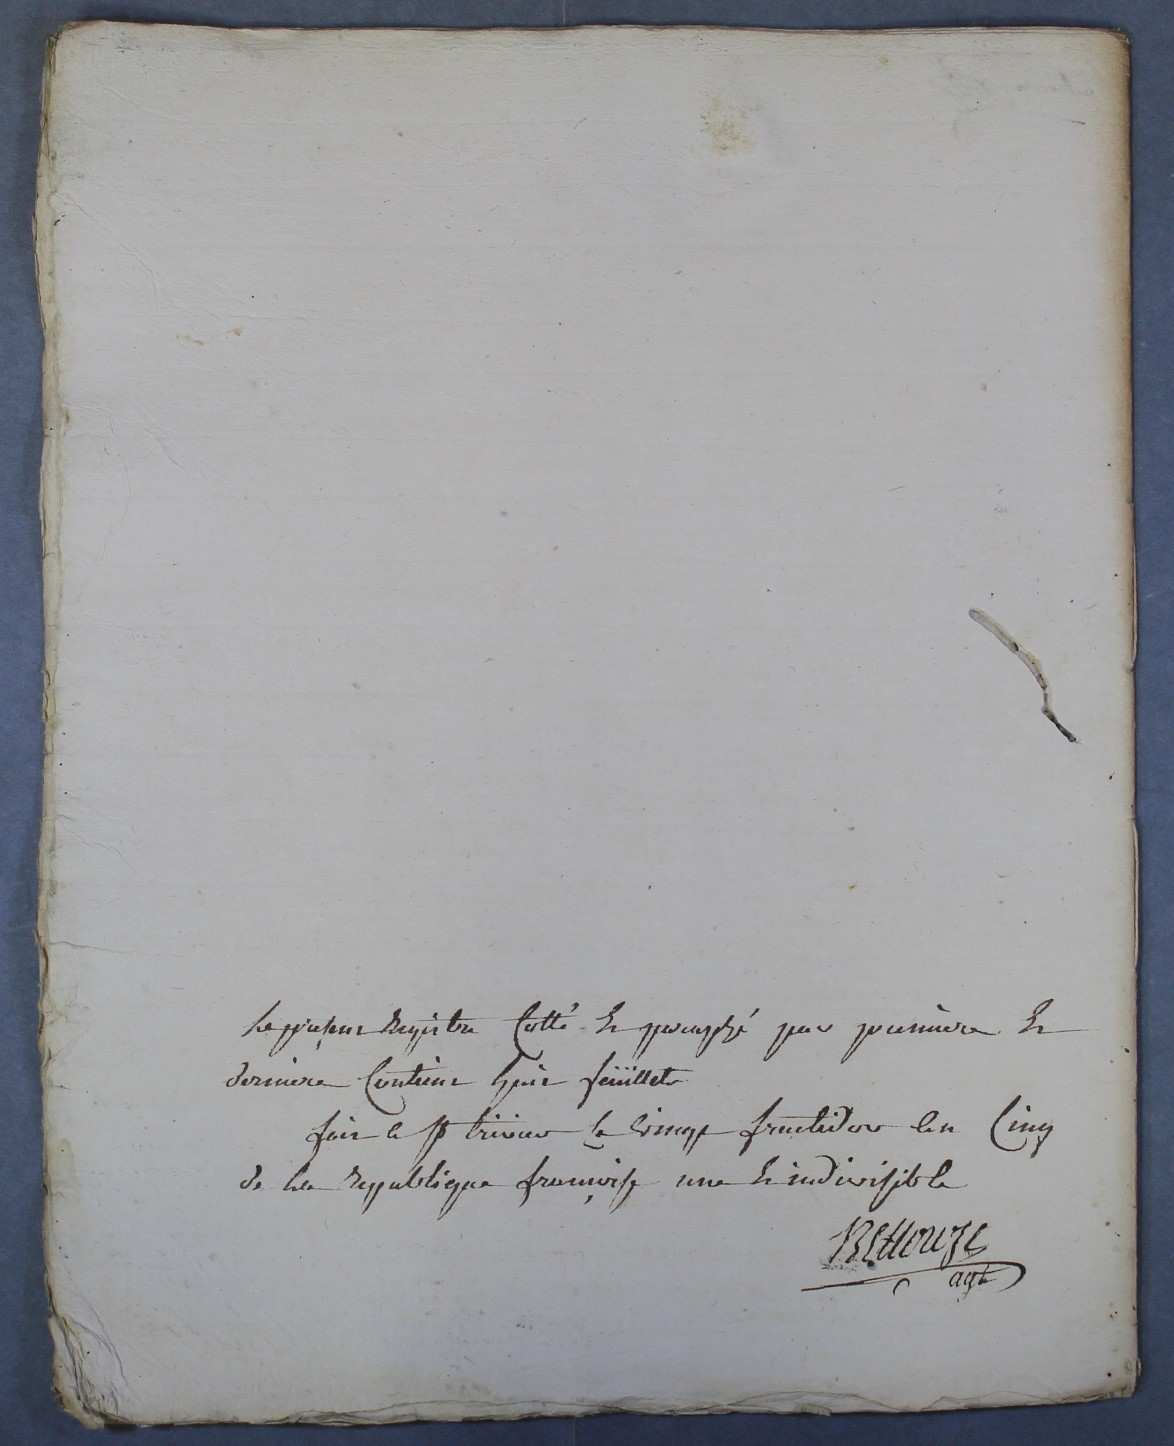 Le present Registre Cotté et paraphé par premiere et
derniere Contient huit feuillets
fait a le vingt fructidor l'an Cinq
de la Republique françoise une et indivisible
agt